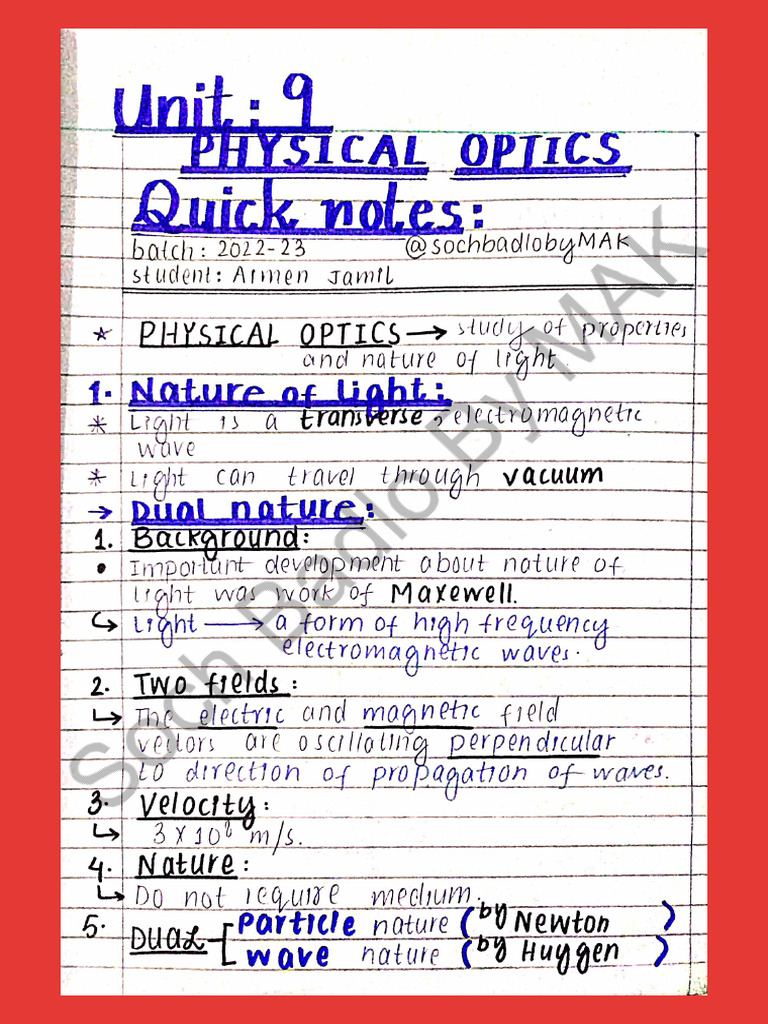 Unit: 9
PHYSICAL OPTICS
Quick notes:
batch: 2022-23 @sochbadlobyMAK
student: Aimen Jamil
* PHYSICAL OPTICS → study of properties
and nature of light
1. Nature of light:
* Light is a transverse, electromagnetic
wave
* Light can travel through vacuum
→ Dual nature:
1. Background:
• Important development about nature of
light was work of Maxewell.
↳ Light → a form of high frequency
electromagnetic waves.
2. Two fields:
↳ The electric and magnetic field
vectors are oscillating perpendicular
to direction of propagation of waves.
3. Velocity:
↳ 3 X 10⁸ m/s.
4. Nature:
↳ Do not require medium.
5. DUAL particle nature (by Newton )
wave nature (by Huygen )
Soch Badlo By MAK